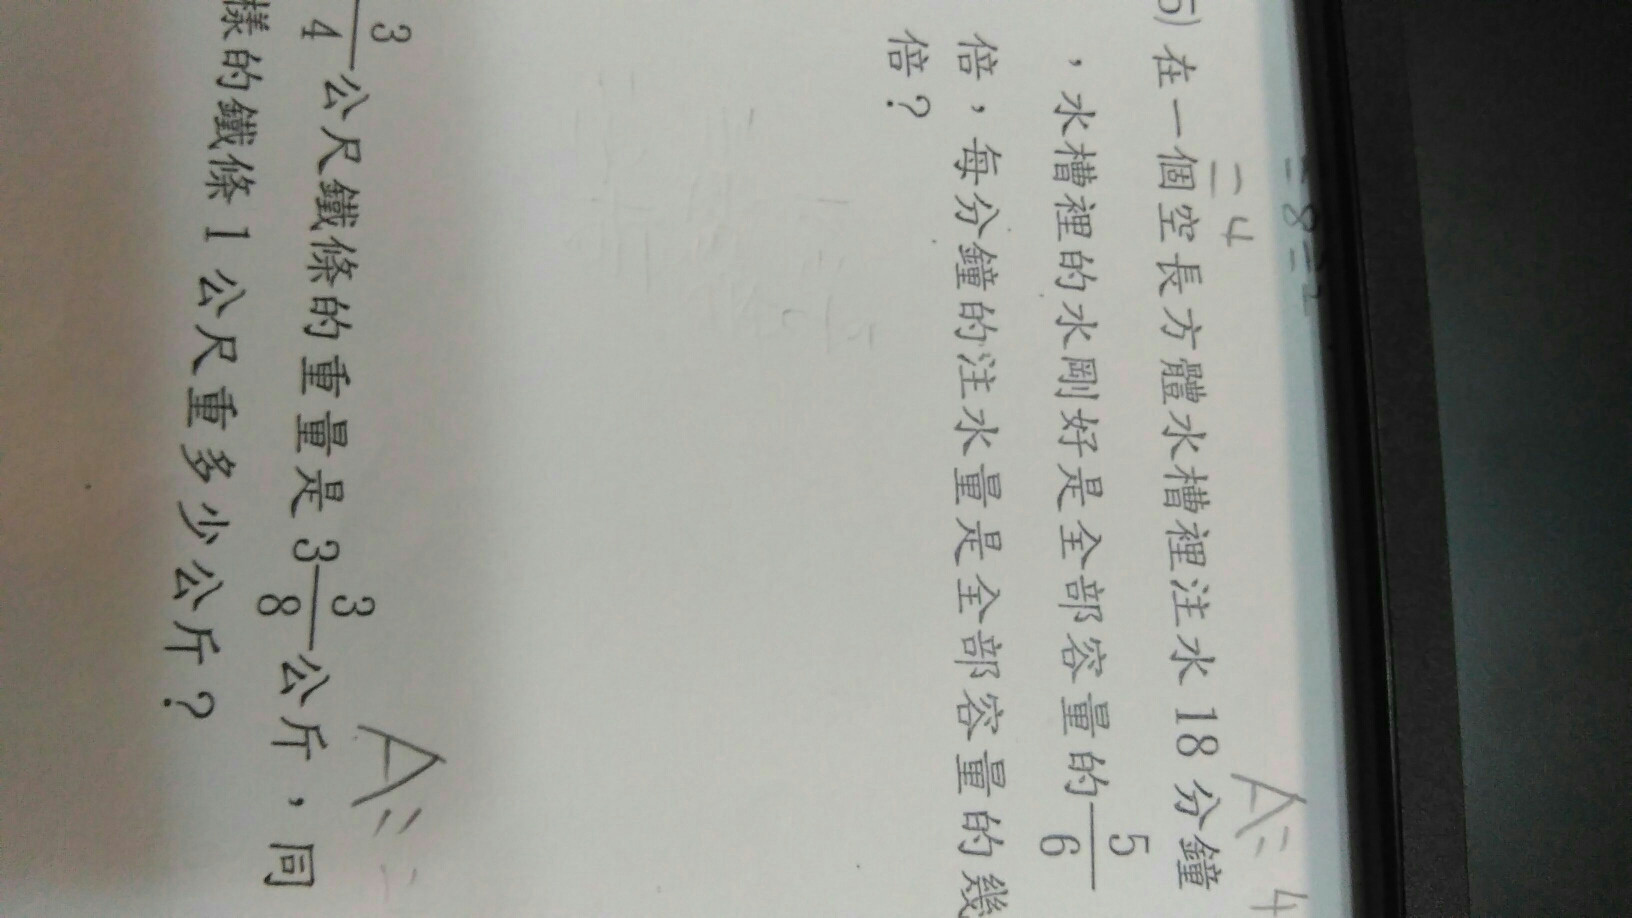 =4
5) 在一個空長方體水槽裡注水18分鐘
，水槽裡的水剛好是全部容量的5/6
倍，每分鐘的注水量是全部容量的幾
倍？
A: 4
3/4公尺鐵條的重量是3 3/8公斤，同
樣的鐵條1公尺重多少公斤？
A: